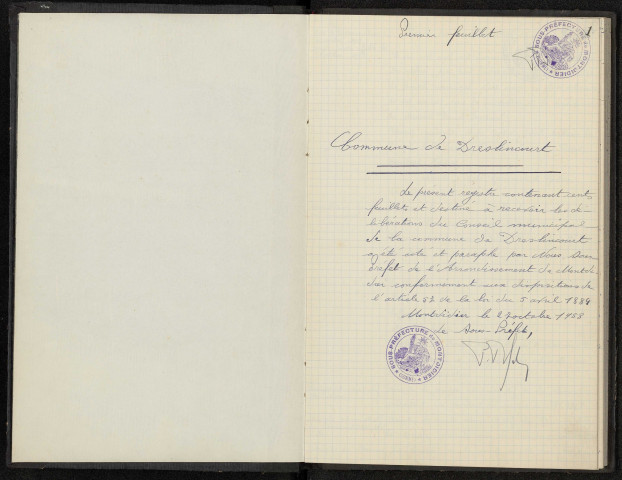 Premier feuillet
1
SOUS-PRÉFECTURE de MONTDIDIER
Commune de Dreslincourt
Le présent registre contenant cent
feuillets et destiné à recevoir les dé-
libérations du Conseil municipal
de la commune de Dreslincourt
a été coté et paraphé par Nous Sous
Préfet de l'Arrondissement de Montdi
dier conformément aux dispositions de
l'article 52 de la loi du 5 avril 1884
Montdidier le 27 octobre 1958
Le Sous-Préfet,
SOUS-PRÉFECTURE de MONTDIDIER